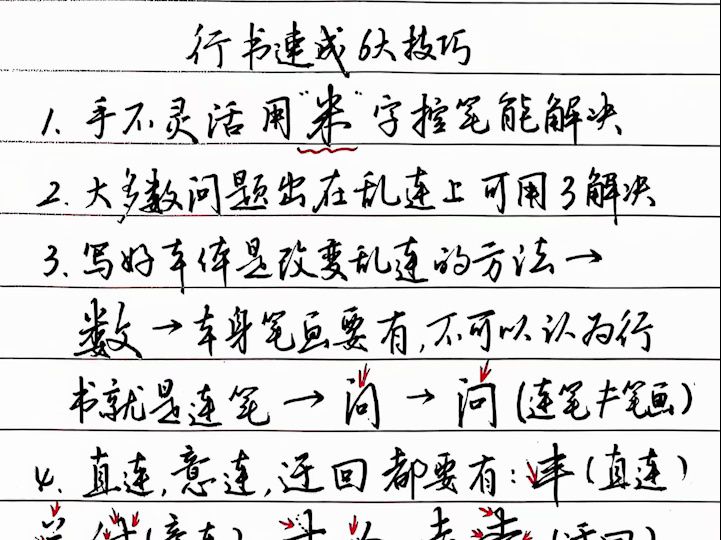 行书速成6大技巧
1. 手不灵活用"米"字控笔能解决
2. 大多数问题出在乱连上可用3解决
3. 写好本体是改变乱连的方法→
数→本身笔画要有,不可以认为行
书就是连笔→问→问(连笔≠笔画)
4. 直连,意连,迂回都要有:丰(直连)